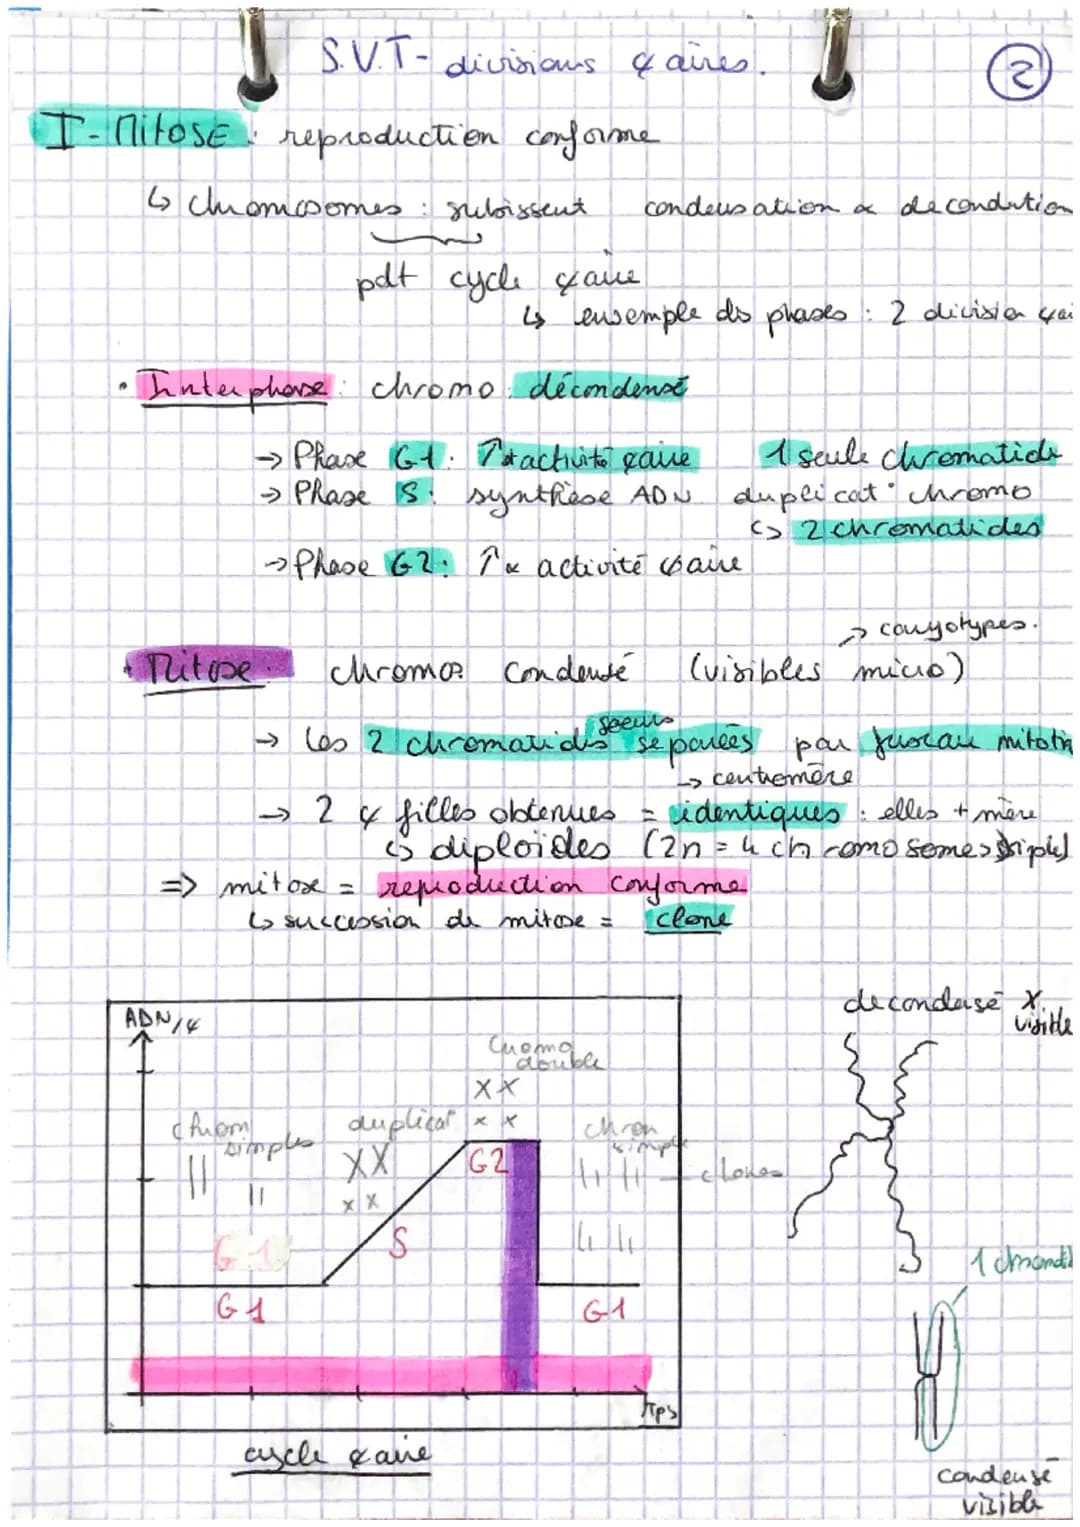 S.V.T - divisions ¢aires.
2
I - MitosE : reproduction conforme
↳ chromosomes : subissent condensation & decondution
pdt cycle ¢aire
↳ ensemple des phases : 2 division ¢ai
• Interphase : chromo : décondensé
→ Phase G1 : ↑ activité ¢aire 1 seule chromatide
→ Phase S : synthèse ADN duplicat° chromo
↳ 2 chromatides
→ Phase G2 : ↑ & activité ¢aire
→ caryotypes.
Mitose chromos condensé (visibles micro)
soeurs
→ les 2 chromatides separées par fuseau mitotiq
→ centromère
→ 2 ¢ filles obtenues = identiques : elles + mère
↳ diploïdes (2n = 4 chromosomes simples)
=> mitose = reproduction conforme
↳ succession de mitose = clone
ADN/¢
Chromo double
XX
x x
chrom simples
duplicat
XX
x x
G2
chrom simple
clones
S
G1
G1
G1
Tps
cycle ¢aire
decondensé X visible
1 chromatid
condensé
visible